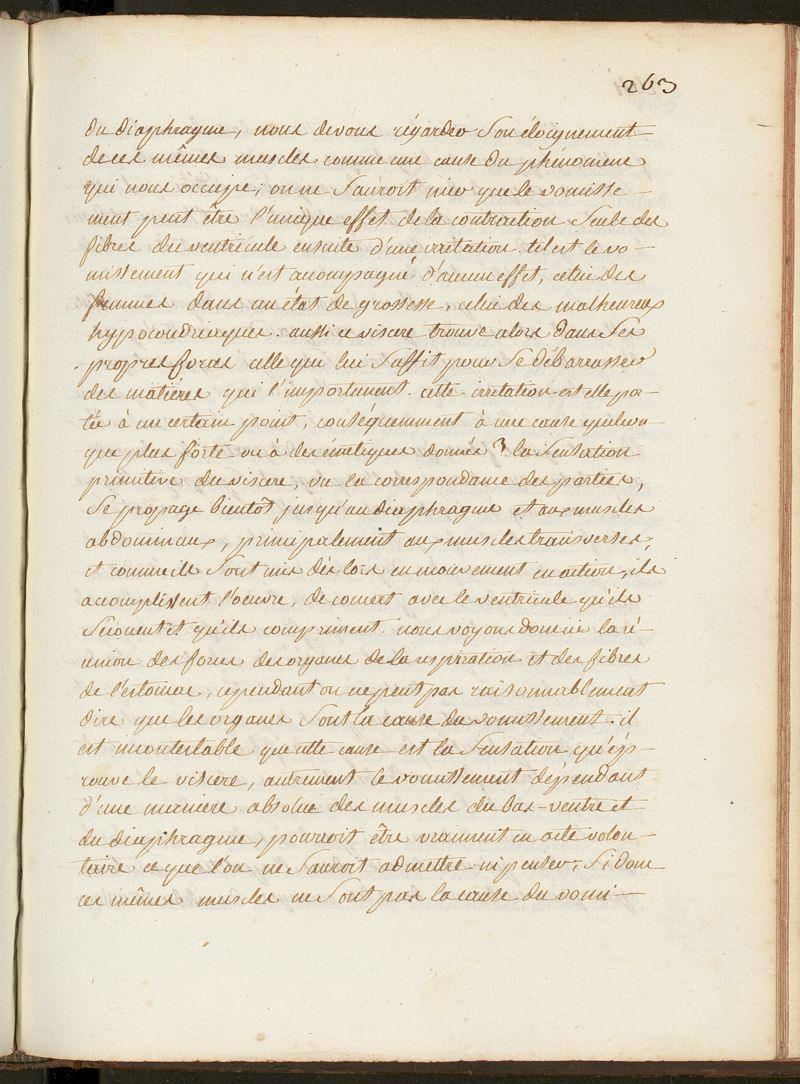 263
du diaphragme, nous devons régarder Son éloignement
de ces mêmes muscles comme une cause du phénomene
qui nous occupe; on ne Sauroit nier que le vomisse-
ment peut être l'unique effet de la contraction Seule des
fibres du ventricule ensuite d'une irritation. tel est le vo-
missement qui n'est acompagné d'aucun effet, celui des
femmes dans un état de grossesse, celui des malheureux
hypocondriaques. aussi ce viscere trouve alors dans Ses
propres forces celle qui lui Suffit pour Se débarrasser
des matiéres qui l'importunent. cette irritation est elle por-
tée à un certain point, conséquemment à une cause quelcon-
que plus forte ou à des émetiques donnés? la Sensation
primitive du viscere, vu la correspondance des parties,
Se propage bientôt jusqu'au diaphragme et aux muscles
abdominaux, principalement aux muscles transverses,
et comme ils Sont mis dès lors en mouvement en action, ils
acomplissent l'oeuvre, de concert avec le ventricule qu'ils
Secouent et qu'ils compriment. nous voyons donc ici la ré-
union des forces des organes de la respiration et des fibres
de l'estomac, cependant on ne peut pas raisonnablement
dire que les organes Sont la cause du vomissement. il
est incontestable que cette cause est la Sensation qu'ép-
rouve le viscere, autrement le vomissement dépendant
d'une maniere absolue des muscles du bas-ventre et
du diaphragme, pourroit être vraiment un acte volon-
taire ce que l'on ne Sauroit admettre ni penser; Si donc
ces mêmes muscles ne Sont pas la cause du vomi-